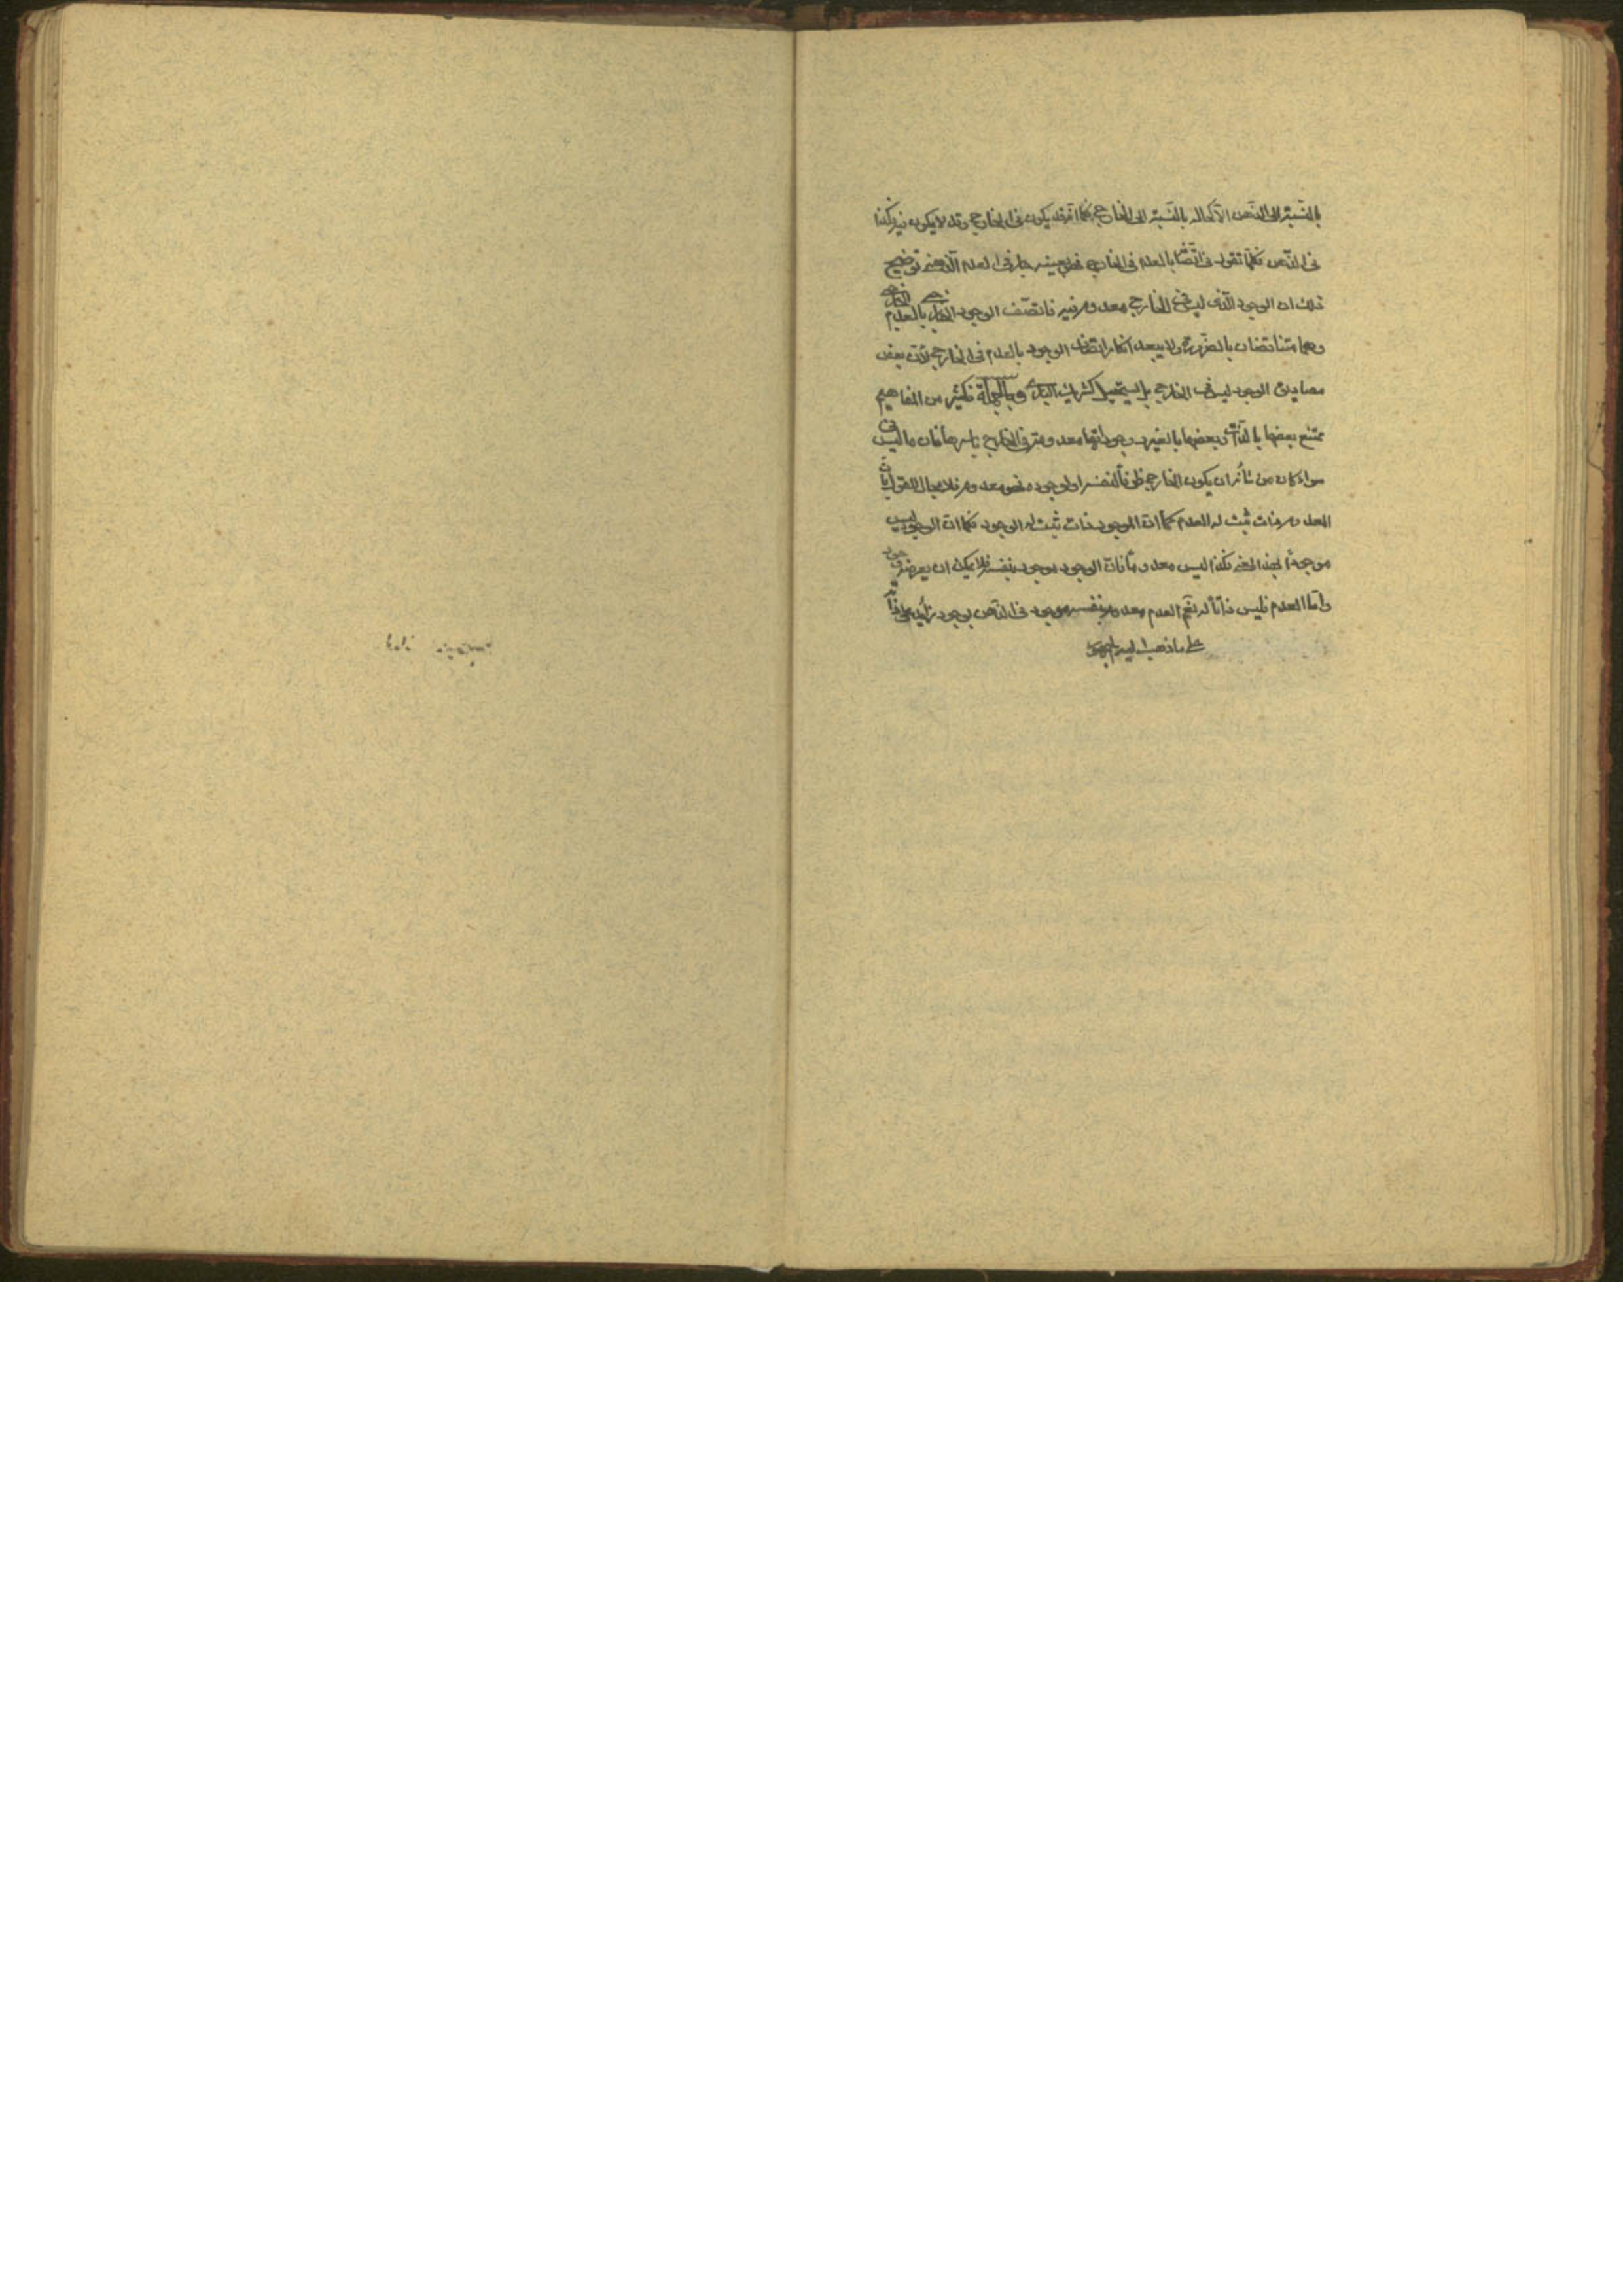 بالنسبة الى الذهن الا كحاله بالنسبة الى الخارج فكما انه قد يكون فى الخارج وقد لا يكون فيه فكذا
فى الذهن فكلما تقول فى اتصافه بالعدم فى الخارج فهو بعينه جار فى العدم الذهنى توضيح
ذلك ان الوجود الذى ليس فى الخارج معدوم فيه فاتصف الوجود الخارجى بالعدم الخارجى
وهما متناقضان بالضرورة ولا يبعد انكار اتصاف الوجود بالعدم فى الخارج لان بعض
مصاديق الوجود ليس فى الخارج بل يستحيل كشريك البارى وبالجملة فكثير من المفاهيم
ممتنع بعضها بالذات وبعضها بالغير ووجوداتها معدومة فى الخارج باسرها فان ما ليس فى
سواء كان من شأنه ان يكون الخارج ظرفاً لنفسه او لوجوده فهو معدوم فلا مجال للقول بان
المعدوم ذات ثبت له العدم كما ان الموجود ذات ثبت له الوجود فكما ان الوجود ليس
موجوداً بهذا المعنى فكذا ليس معدوماً فان الوجود موجود بنفسه فلا يمكن ان يعرضه وجود
واما العدم فليس ذاتاً له نعم العدم معدوم بنفسه موجود فى الذهن بوجود زايد على ذاته
على ما ذهب اليه